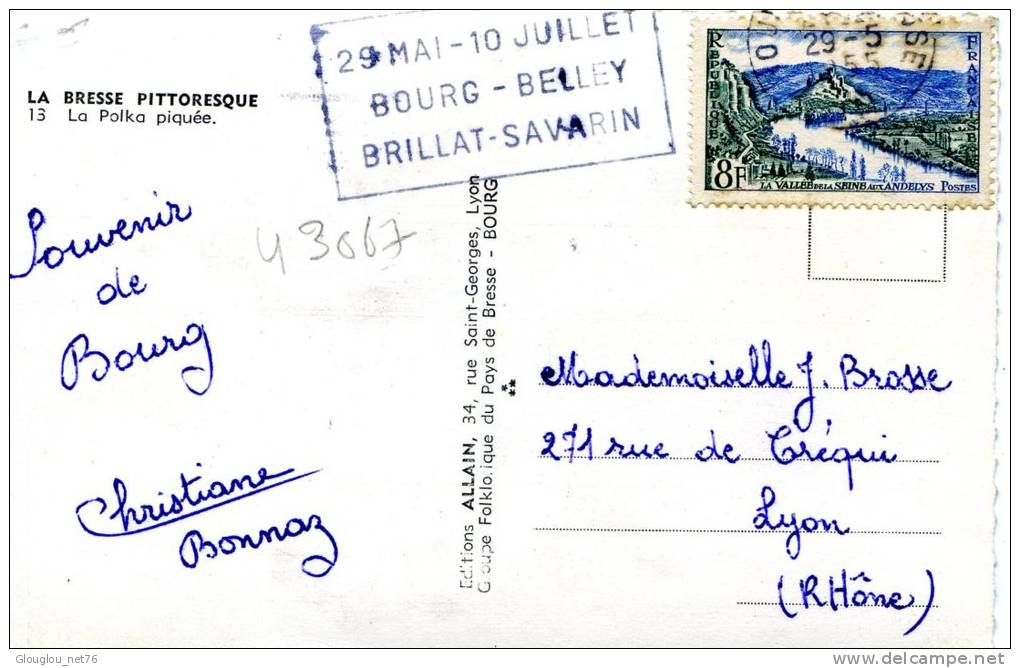 LA BRESSE PITTORESQUE
13 La Polka piquée.
29 MAI-10 JUILLET
BOURG-BELLEY
BRILLAT-SAVARIN
29-5
55
RÉPUBLIQUE
FRANÇAISE
8F
LA VALLÉE DE LA SEINE AUX ANDELYS POSTES
Souvenir
de
Bourg
Christiane
Bonnaz
43067
Editions ALLAIN, 34, rue Saint-Georges, Lyon
Groupe Folklorique du Pays de Bresse - BOURG
Mademoiselle J. Brosse
271 rue de Créqui
Lyon
(Rhône)
Glouglou_net76